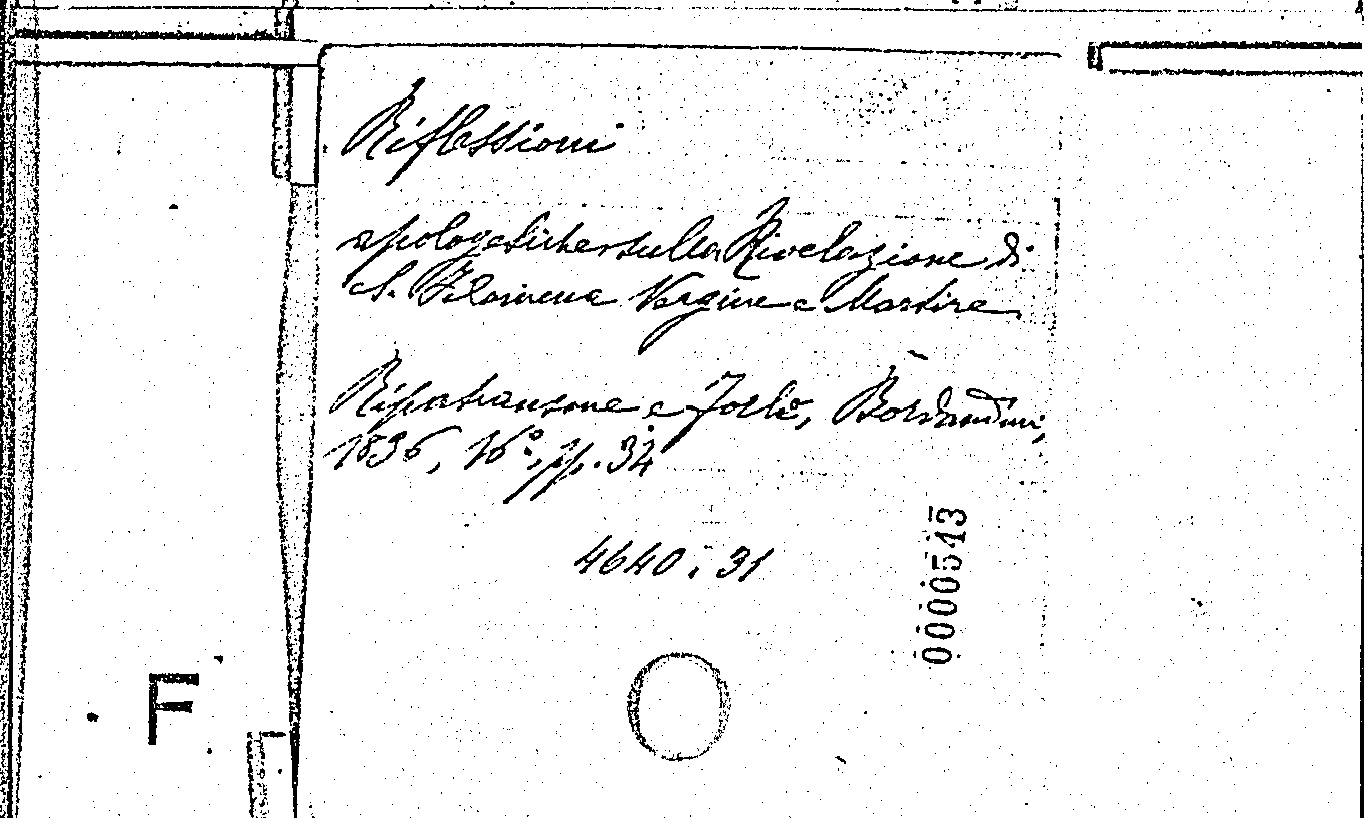 Riflessioni
apologetiche sulla Rivelazione di
S. Filomena Vergine e Martire.
Ripatransone e Forlì, Bordandini,
1836, 16°, pp. 32
4640. 31
0000543
F